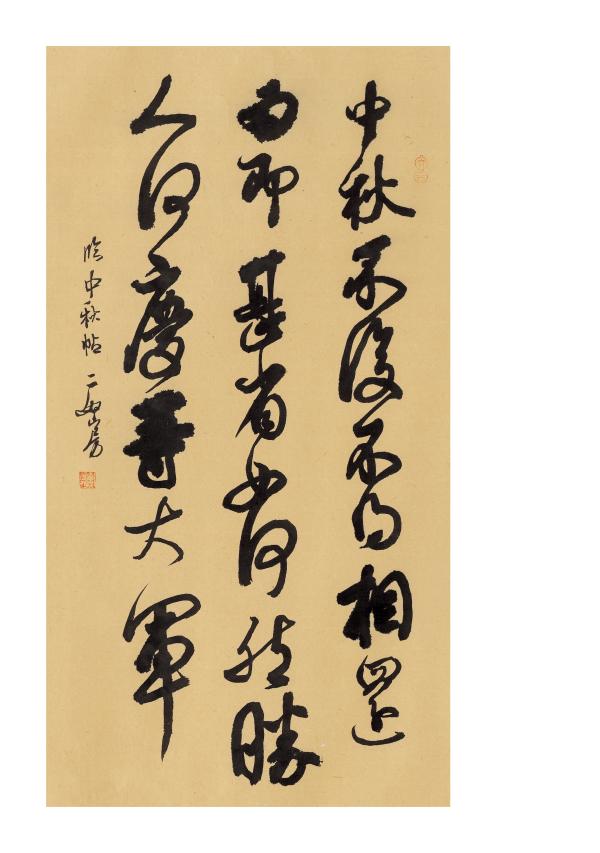 中秋不復不得相還
為即甚省如何然勝
人何慶等大軍
臨中秋帖 二